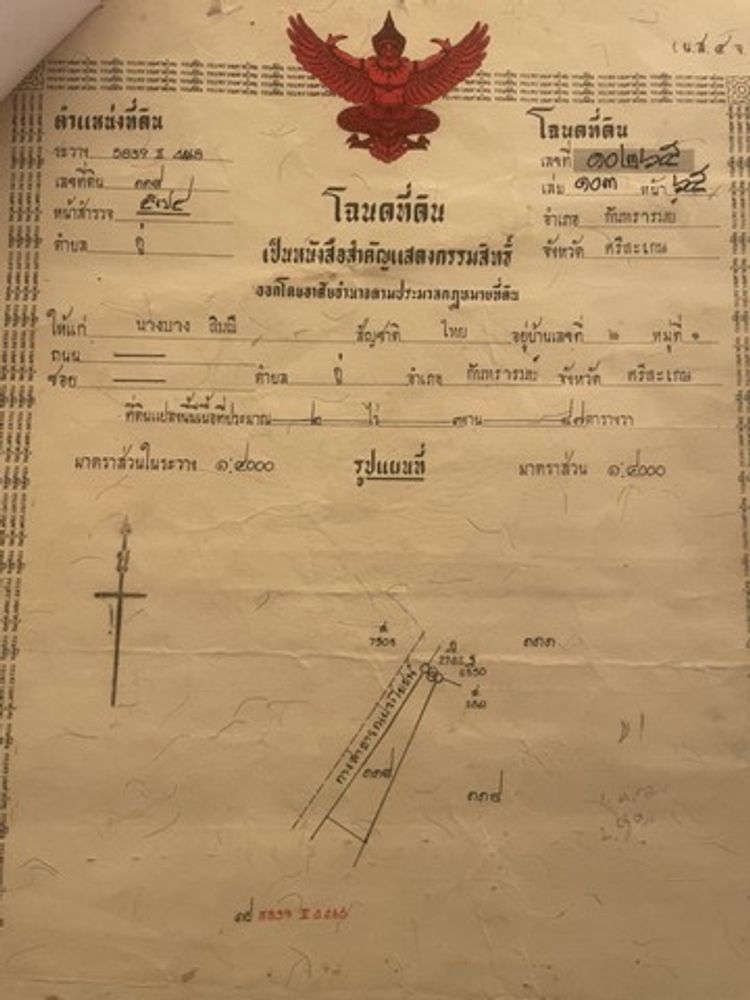 (น.ส. ๔ จ
ตำแหน่งที่ดิน
ระวาง 5839 II
เลขที่ดิน ๓๓๘
หน้าสำรวจ ๕๗๔
ตำบล คู่
โฉนดที่ดิน
เลขที่ ๑๐๒๖๕
เล่ม ๑๐๓ หน้า ๖๕
อำเภอ กันทรารมย์
จังหวัด ศรีสะเกษ
โฉนดที่ดิน
เป็นหนังสือสำคัญแสดงกรรมสิทธิ์
ออกโดยอาศัยอำนาจตามประมวลกฎหมายที่ดิน
ให้แก่ นางบาง สัญชาติ ไทย อยู่บ้านเลขที่ ๒ หมู่ที่ ๑
ถนน
ซอย ตำบล คู่ อำเภอ กันทรารมย์ จังหวัด ศรีสะเกษ
ที่ดินแปลงนี้มีเนื้อที่ประมาณ ๒ ไร่ งาน ๔๗ ตารางวา
มาตราส่วนในระวาง ๑:๔๐๐๐ รูปแผนที่ มาตราส่วน ๑:๔๐๐๐
น
7508
๓๓๓
ทางสาธารณประโยชน์
๓๓๘
๓๓๔
5839 II